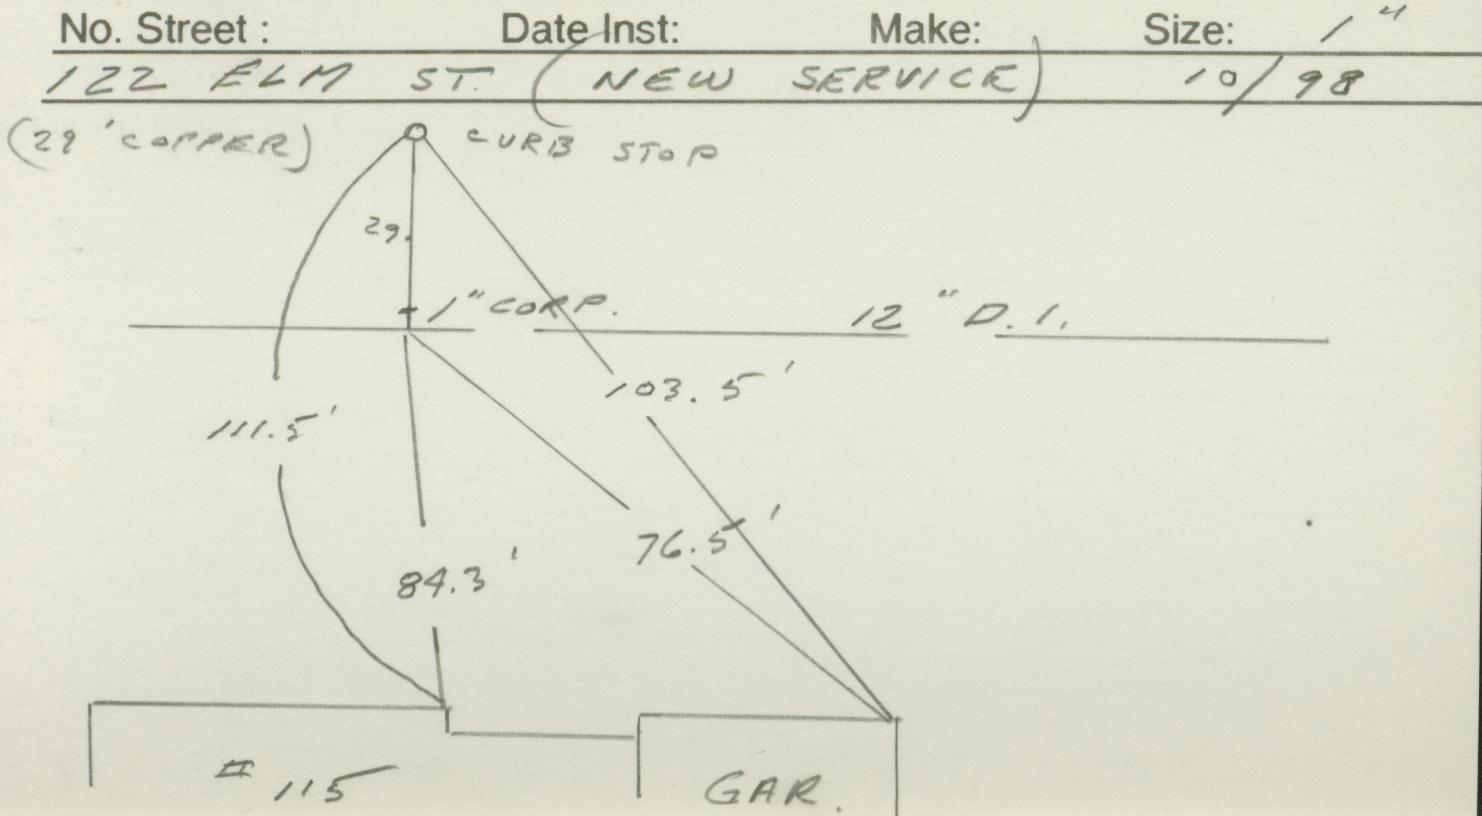 No. Street : Date Inst: Make: Size: 1"
122 ELM ST. (NEW SERVICE) 10/98
(29' COPPER) CURB STOP
29.
1" CORP.
12" D.I.
103.5'
111.5'
76.5'
84.3'
# 115
GAR.